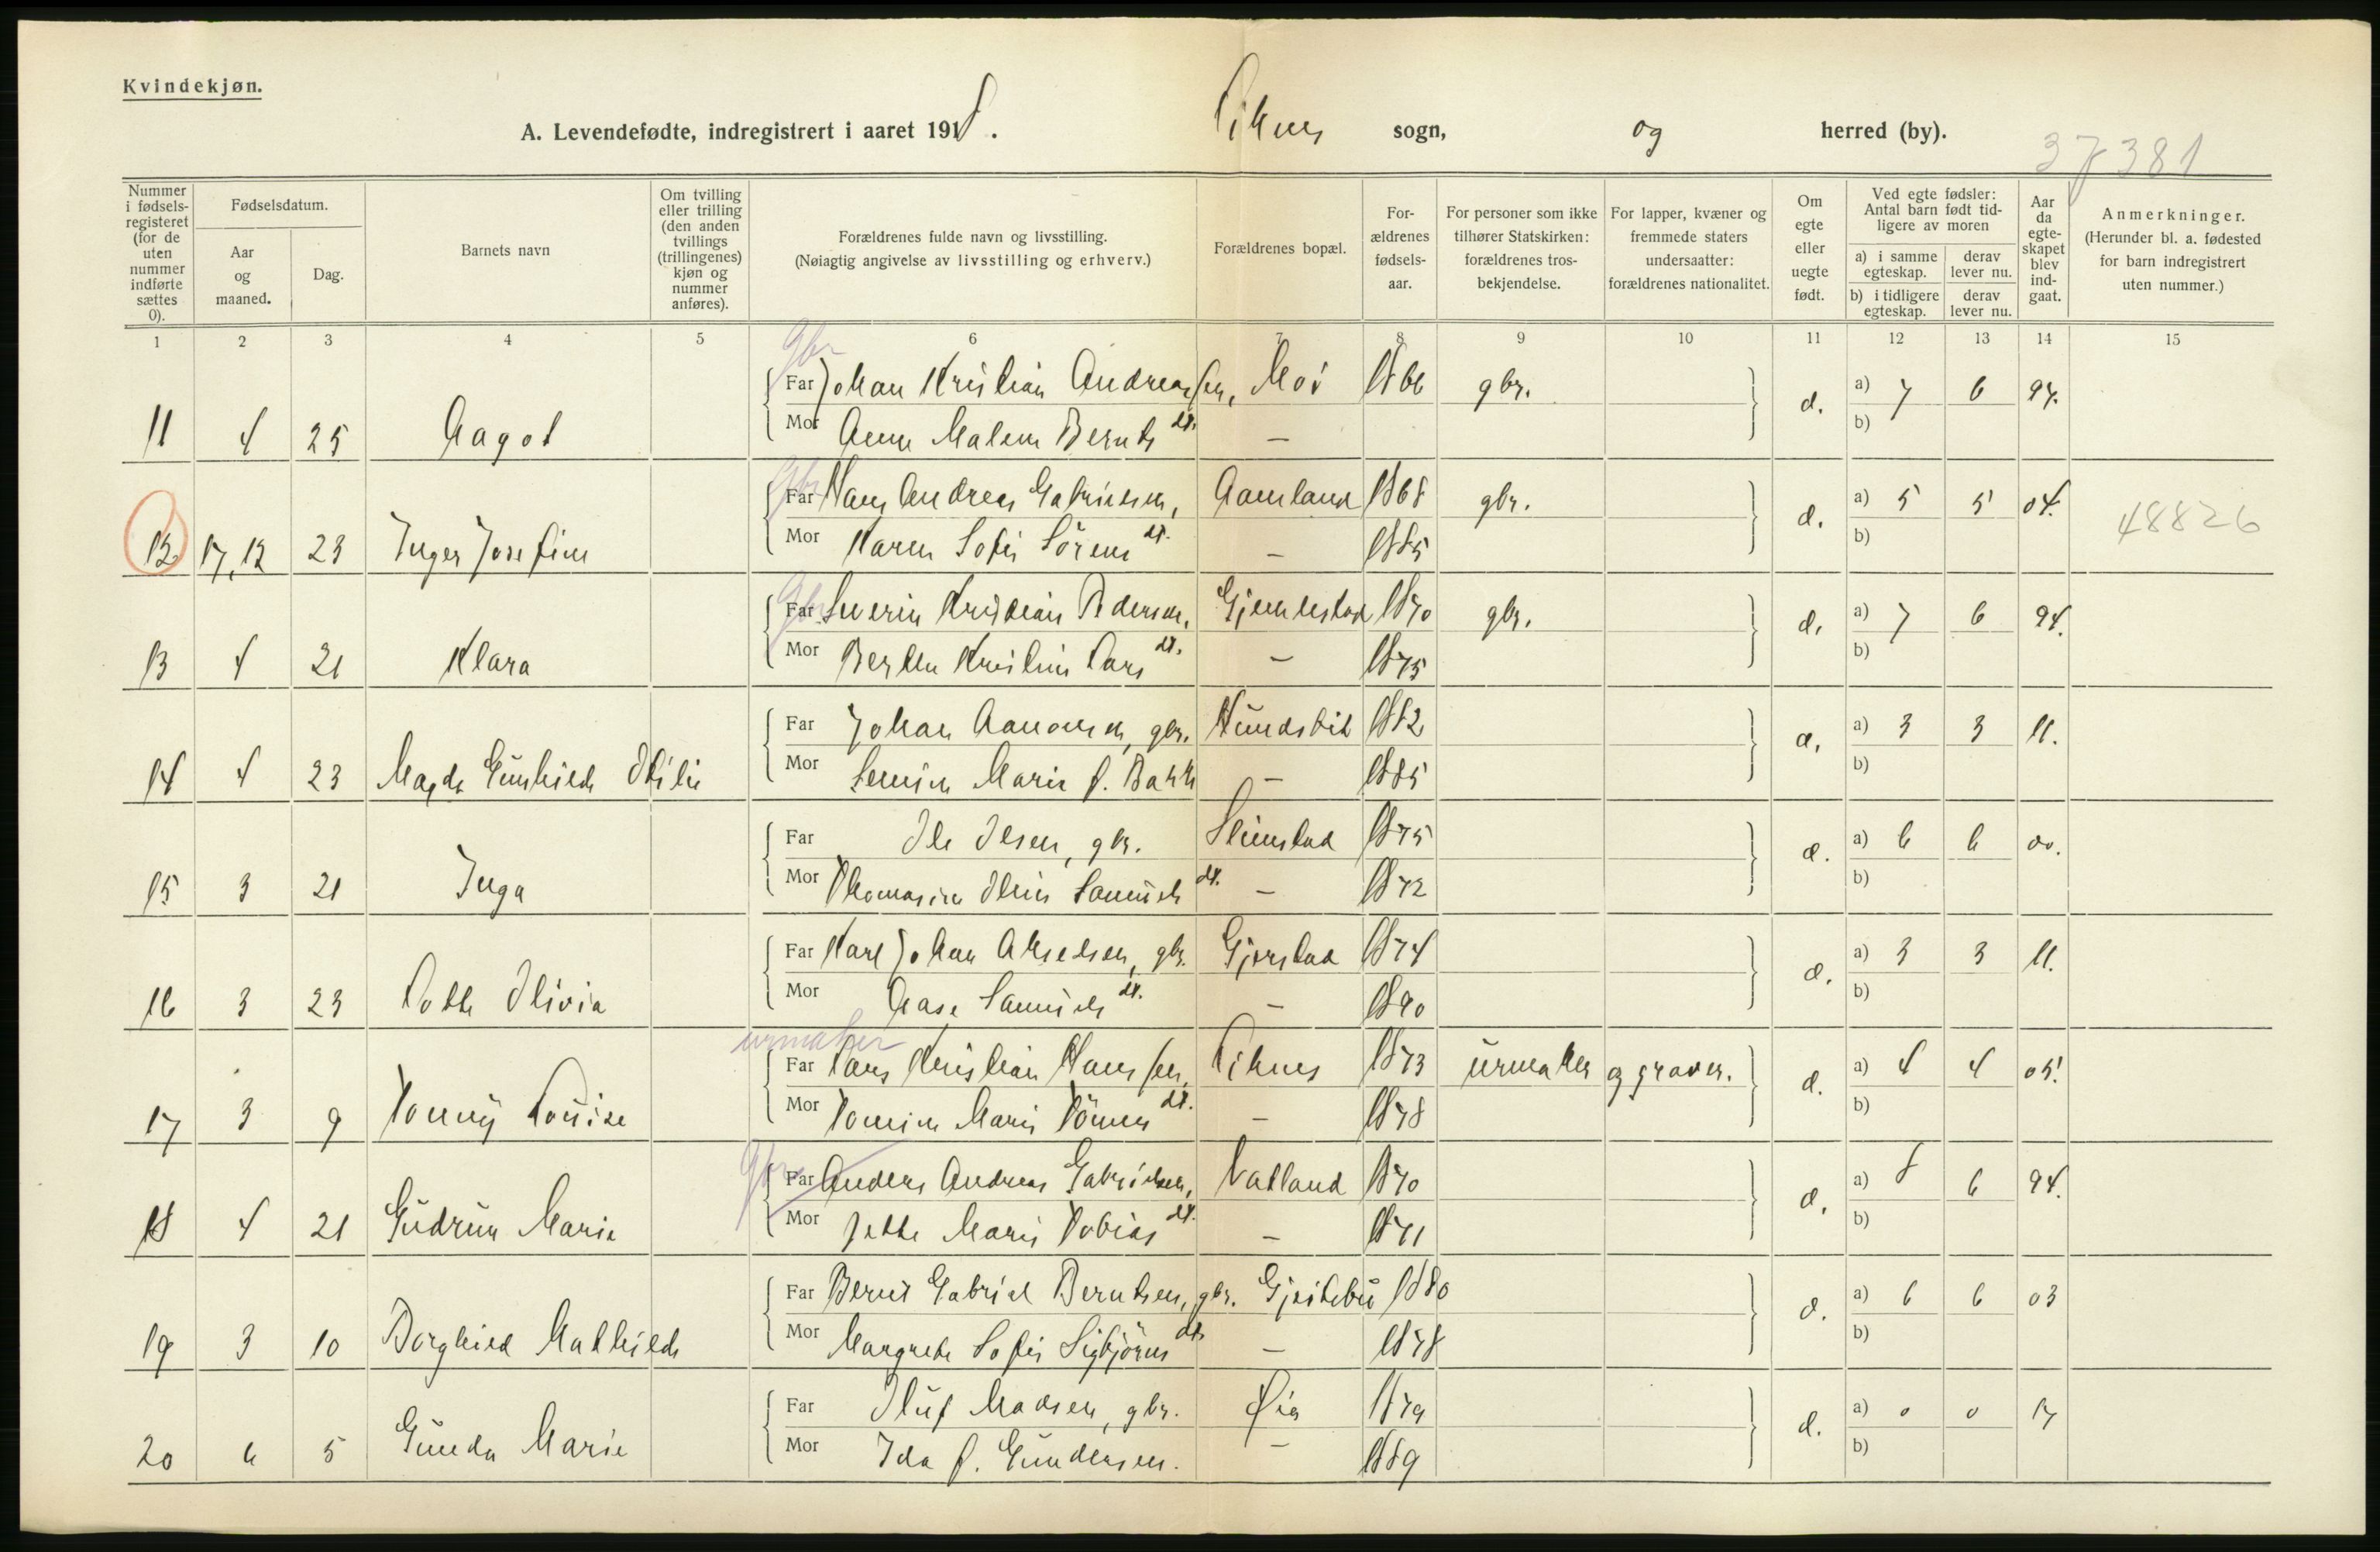 Kvindekjøn.
A. Levendefødte, indregistrert i aaret 1918. sogn, og herred (by).
37381
Nummer i fødsels-registeret (for de uten nummer indførte sættes 0).
Fødselsdatum.
Aar og maaned.
Dag.
Barnets navn
Om tvilling eller trilling (den anden tvillings (trillingenes) kjøn og nummer anføres).
Forældrenes fulde navn og livsstilling.
(Nøiagtig angivelse av livsstilling og erhverv.)
Forældrenes bopæl.
For-ældrenes fødsels-aar.
For personer som ikke tilhører Statskirken: forældrenes tros-bekjendelse.
For lapper, kvæner og fremmede staters undersaatter: forældrenes nationalitet.
Om egte eller uegte født.
Ved egte fødsler: Antal barn født tid-ligere av moren
a) i samme egteskap.
derav lever nu.
b) i tidligere egteskap.
derav lever nu.
Aar da egte-skapet blev ind-gaat.
Anmerkninger.
(Herunder bl. a. fødested for barn indregistrert uten nummer.)
1 2 3 4 5 6 7 8 9 10 11 12 13 14 15
gbr
Far Johan Kristian Andreassen, Moi 1866 gbr.
11 4 25 Aagot d. a) 7 6 97.
Mor Anne Malene Bernts dt. — b)
gbr
Far Hans Andreas Gabrielsen, Aamland 1868 gbr.
12. 17, 12 23 Inger Josefine d. a) 5 5 04. 48826
Mor Karen Sofie Sörens dt. — 1885 b)
gbr.
Far Severin Kristian Pedersen, 1870 gbr.
13 4 21 Klara d. a) 7 6 94.
Mor Berthe Kristine Lars dt. — 1875 b)
Far Johan Aanonsen, gbr. 1882
14 4 23 Magda Gunhild Otilie d. a) 3 3 11.
Mor Marie f. Bakke — 1885 b)
Far Ole Olsen, gbr. 1875
15 3 21 Inga d. a) 6 6 00.
Mor Thomasine Oline Samuels dt. — 1872 b)
Far Karl Johan Akselsen, gbr. Gjerstad 1874
16 3 23 Lotte Olivia d. a) 3 3 11.
Mor Aase Samuels dt. — 1890 b)
urmaker
Far Lars Kristian Hanssen, 1873 urmaker og graver.
17 3 9 Tonny Louise d. a) 4 4 05.
Mor Tomine Marie Tönnes dt. — 1878 b)
gbr
Far Anders Andreas Gabrielsen, Vatland 1870
18 4 21 Gudrun Marie d. a) 8 6 94.
Mor Jette Marie Tobias dt. — 1871 b)
Far Bernt Gabriel Berntsen, gbr. 1880
19 3 10 Borghild Mathilde d. a) 6 6 03
Mor Margrete Sofie Sigbjörns dt. — 1878 b)
Far Oluf Madsen, gbr. Øia 1879
20 6 5 Gunda Marie d. a) 0 0 17
Mor Ida f. Gundersen. — 1889 b)